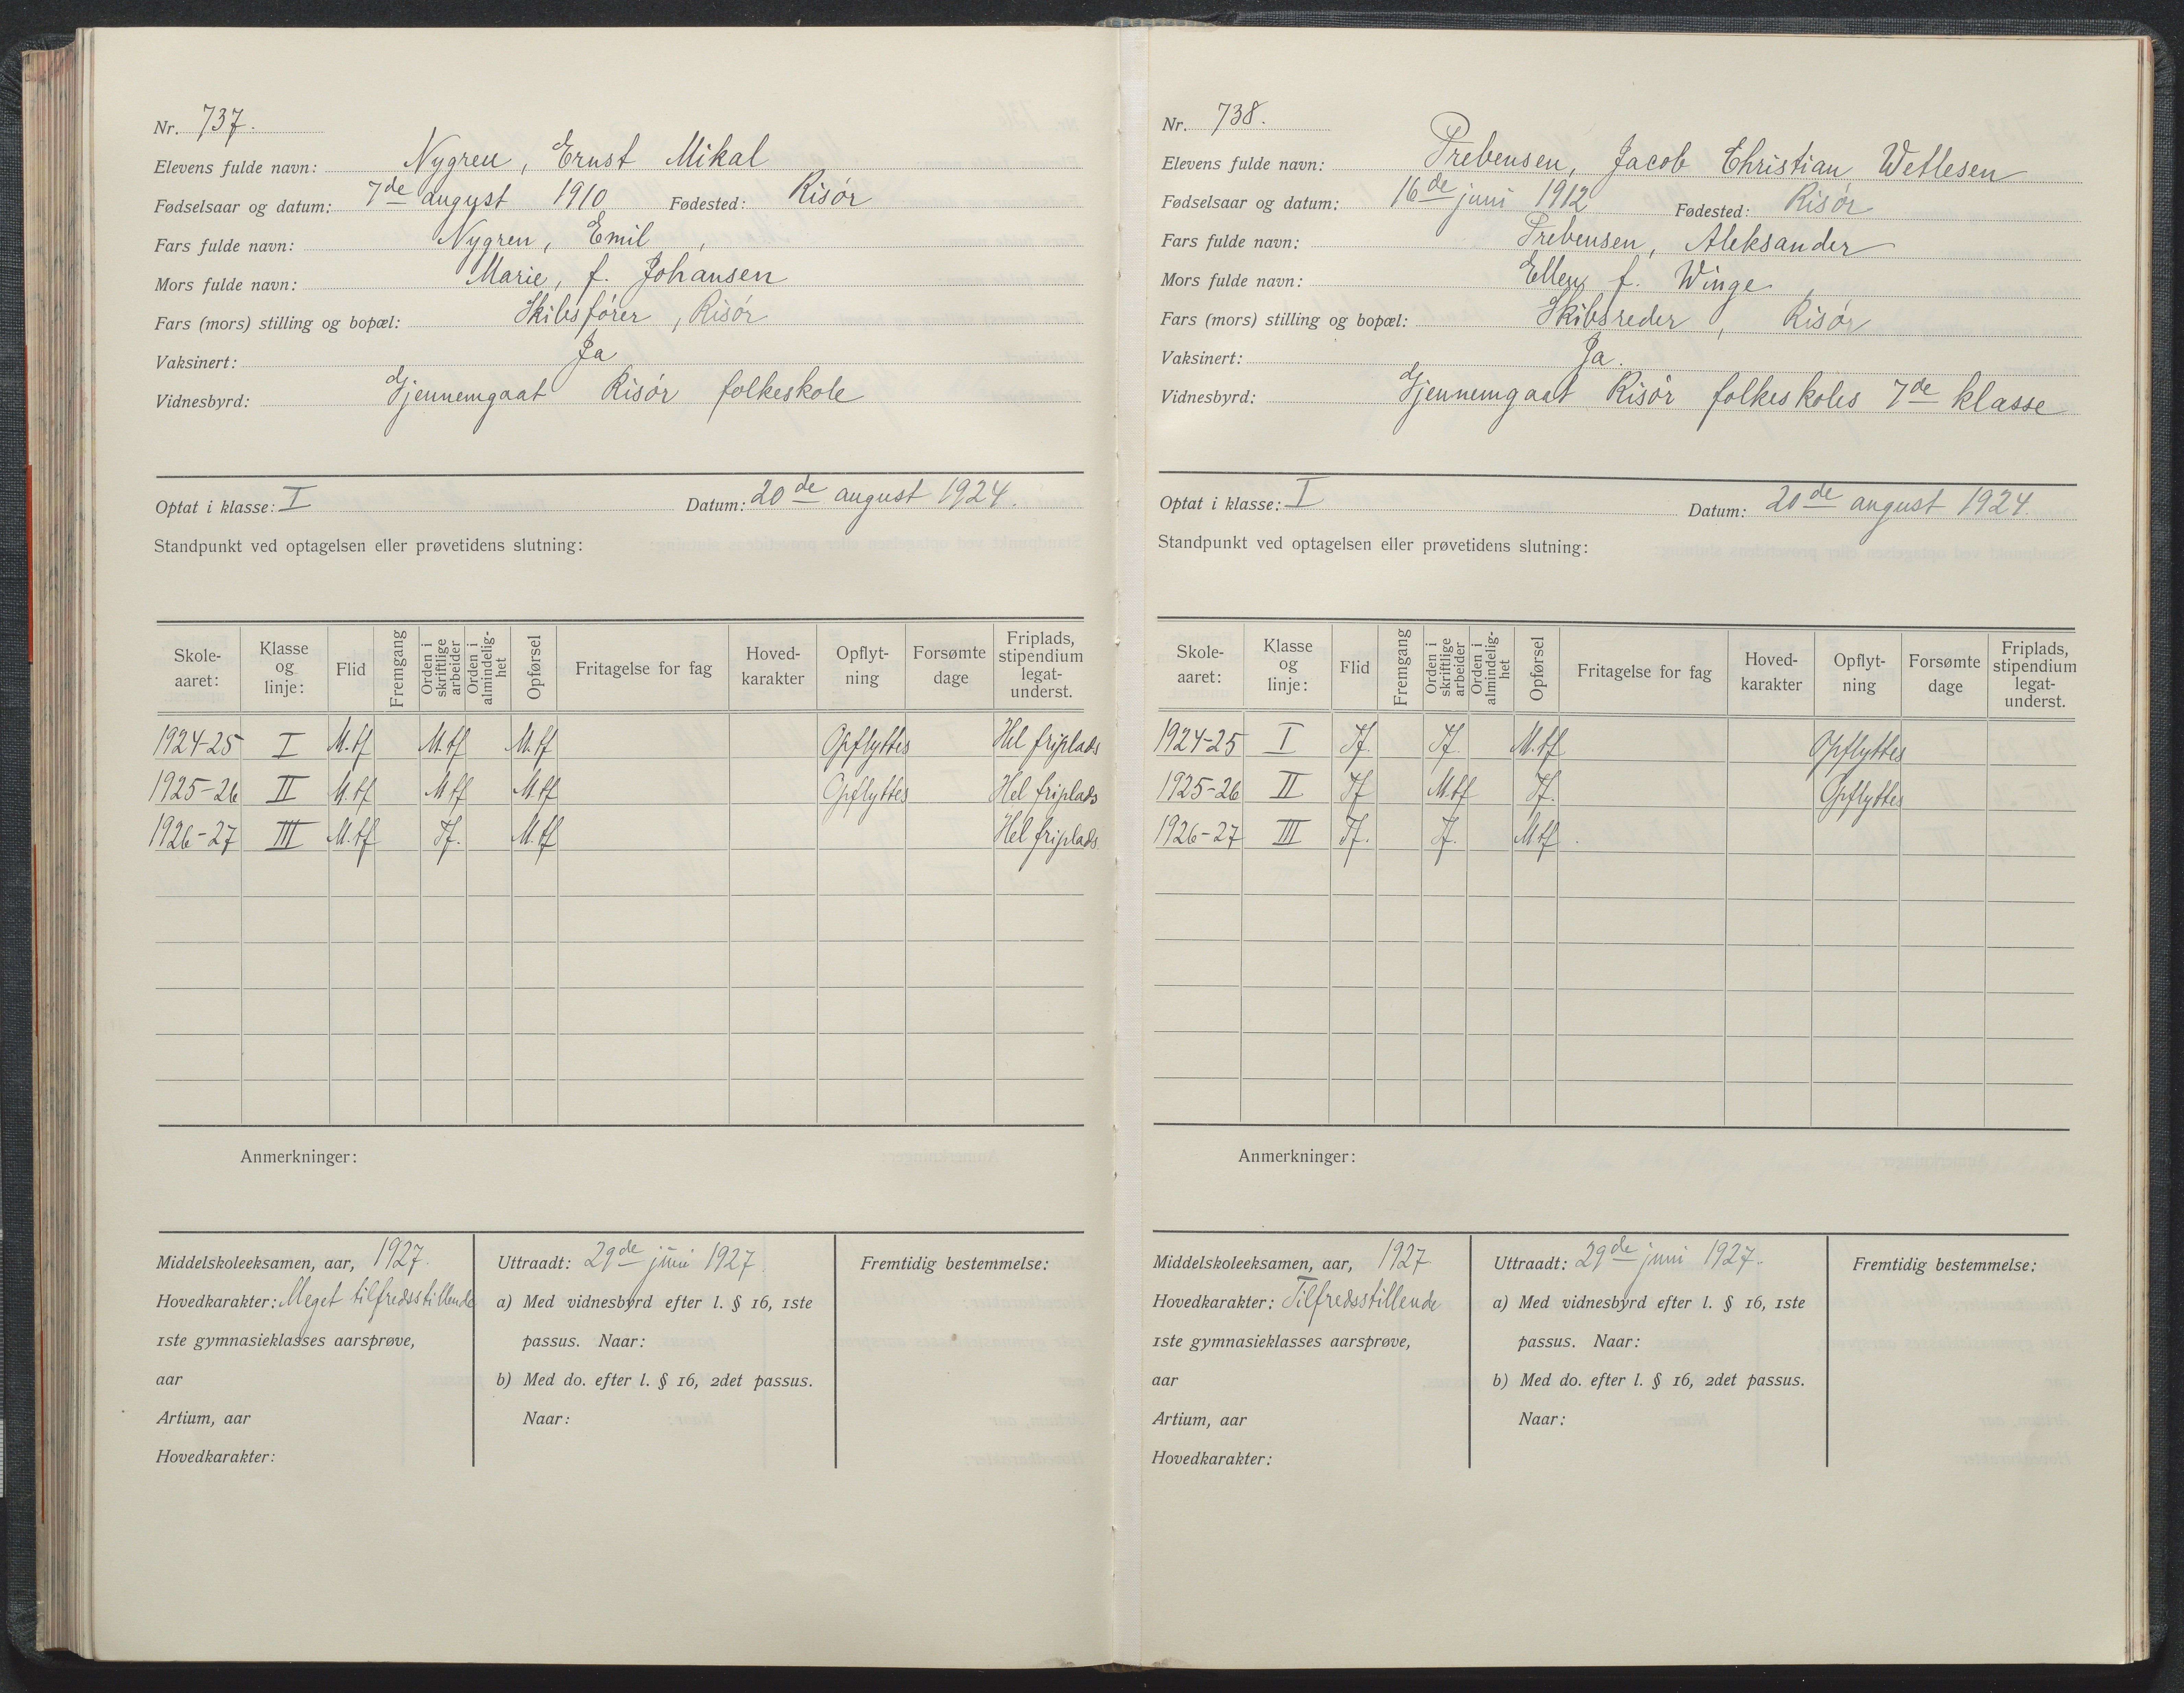 Nr. 737.
Elevens fulde navn: Nygren, Ernst Mikal
Fødselsaar og datum: 7de august 1910 Fødested: Risør
Fars fulde navn: Nygren, Emil,
Mors fulde navn: Marie, f. Johansen
Fars (mors) stilling og bopæl: Skibsfører, Risør
Vaksinert: Ja
Vidnesbyrd: Gjennemgaat Risør folkeskole
Optat i klasse: I Datum: 20de august 1924.
Standpunkt ved optagelsen eller prøvetidens slutning:
Skole-aaret: Klasse og linje: Flid Fremgang Orden i skriftlige arbeider Orden i almindelig-het Opførsel Fritagelse for fag Hoved-karakter Opflyt-ning Forsømte dage Friplads, stipendium legat-underst.
1924-25 I M.tf M.tf M.tf Opflyttes Hel friplads
1925-26 II M.tf M.tf M.tf Opflyttes Hel friplads
1926-27 III M.tf Tf. M.tf Hel friplads
Anmerkninger:
Middelskoleeksamen, aar, 1927.
Hovedkarakter: Meget tilfredsstillende
1ste gymnasieklasses aarsprøve,
aar
Artium, aar
Hovedkarakter:
Uttraadt: 29de juni 1927.
a) Med vidnesbyrd efter l. § 16, 1ste
passus. Naar:
b) Med do. efter l. § 16, 2det passus.
Naar:
Fremtidig bestemmelse:
Nr. 738.
Elevens fulde navn: Prebensen, Jacob Christian Wetlesen
Fødselsaar og datum: 16de juni 1912 Fødested: Risør
Fars fulde navn: Prebensen, Aleksander
Mors fulde navn: Ellen f. Winge
Fars (mors) stilling og bopæl: Skibsreder, Risør
Vaksinert: Ja.
Vidnesbyrd: Gjennemgaat Risør folkeskoles 7de klasse
Optat i klasse: I Datum: 20de august 1924
Standpunkt ved optagelsen eller prøvetidens slutning:
Skole-aaret: Klasse og linje: Flid Fremgang Orden i skriftlige arbeider Orden i almindelig-het Opførsel Fritagelse for fag Hoved-karakter Opflyt-ning Forsømte dage Friplads, stipendium legat-underst.
1924-25 I Tf. Tf. M.tf Opflyttes
1925-26 II Tf M.tf Tf. Opflyttes
1926-27 III Tf. Tf. M.tf.
Anmerkninger:
Middelskoleeksamen, aar, 1927
Hovedkarakter: Tilfredsstillende
1ste gymnasieklasses aarsprøve,
aar
Artium, aar
Hovedkarakter:
Uttraadt: 29de juni 1927.
a) Med vidnesbyrd efter l. § 16, 1ste
passus. Naar:
b) Med do. efter l. § 16, 2det passus.
Naar:
Fremtidig bestemmelse: